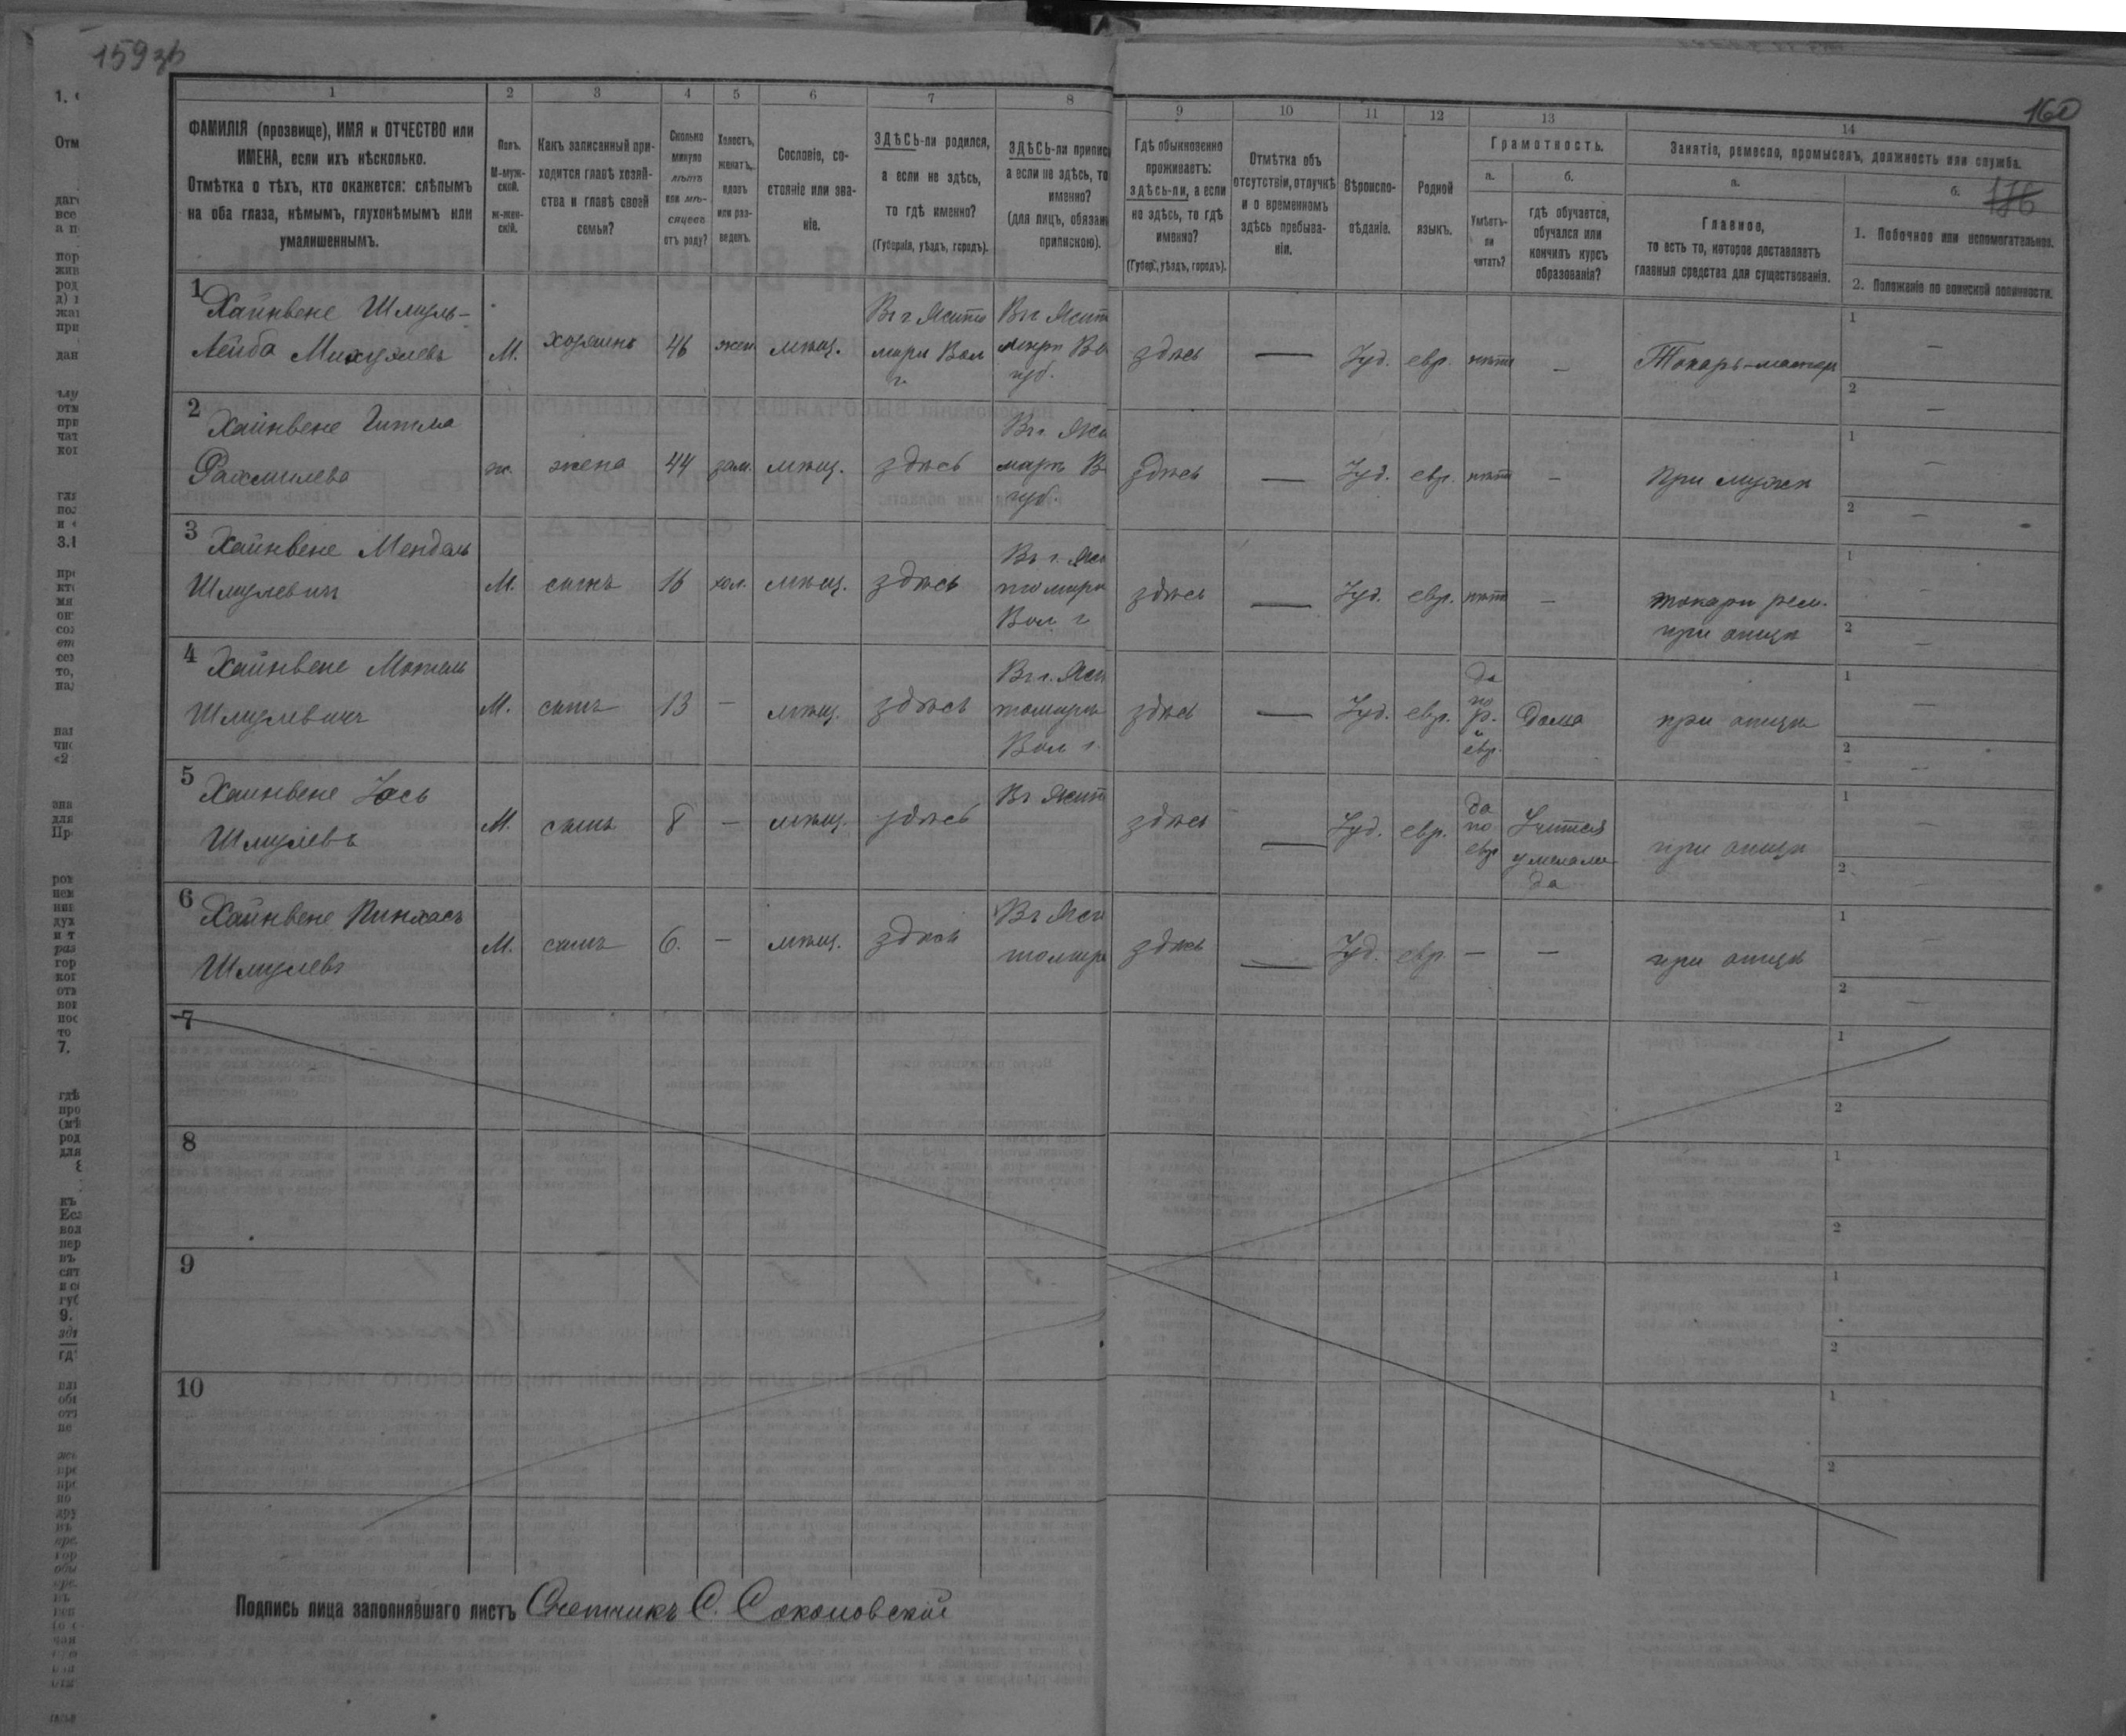 159 зв
160
176
1
2
3
4
5
6
7
8
9
10
11
12
13
14
ФАМИЛІЯ (прозвище), ИМЯ и ОТЧЕСТВО или
ИМЕНА, если ихъ нѣсколько.
Отмѣтка о тѣхъ, кто окажется: слѣпымъ
на оба глаза, нѣмымъ, глухонѣмымъ или
умалишеннымъ.
Полъ.
М-муж-
ской.
ж-жен-
скій.
Какъ записанный при-
ходится главѣ хозяй-
ства и главѣ своей
семьи?
Сколько
минуло
лѣтъ
или мѣ-
сяцевъ
отъ роду?
Холостъ,
женатъ,
вдовъ
или раз-
веденъ.
Сословіе, со-
стояніе или зва-
ніе.
ЗДѢСЬ-ли родился,
а если не здѣсь,
то гдѣ именно?
(Губернія, уѣздъ, городъ).
ЗДѢСЬ-ли припис
а если не здѣсь, то
именно?
(для лицъ, обязан
припискою).
Гдѣ обыкновенно
проживаетъ:
здѣсь-ли, а если
не здѣсь, то гдѣ
именно?
(Губер., уѣздъ, городъ).
Отмѣтка объ
отсутствіи, отлучкѣ
и о временномъ
здѣсь пребыва-
ніи.
Вѣроиспо-
вѣданіе.
Родной
языкъ.
Грамотность.
а.
Умѣетъ-
ли
читать?
б.
гдѣ обучается,
обучался или
кончилъ курсъ
образованія?
Занятіе, ремесло, промыселъ, должность или служба.
а.
Главное,
то есть то, которое доставляетъ
главныя средства для существованія.
б.
1. Побочное или вспомогательное.
2. Положеніе по воинской повинности.
1
Хайнвене Шмуль-
Лейба
М. хозяинъ 46 жен мѣщ.
Въ г Жито
мири Вол
г.
Въ г Жит
мири Во
губ.
здѣсь — Іуд. евр. нѣтъ — Токарь-мастер
1 —
2 —
2
Хайнвене Гитла
Рахмилева
ж. жена 44 зам. мѣщ. здѣсь
Въ г. Жи
марѣ В
губ.
здѣсь — Іуд. евр. нѣтъ — При мужѣ
1 —
2 —
3
Хайнвене Мендель
Шмулевич
М. сынъ 16 хол. мѣщ. здѣсь
Въ г. Жи
томири
Вол г
здѣсь — Іуд. евр. нѣтъ —
токарн рем.
при отцѣ
1 —
2 —
4
Хайнвене Мотель
Шмулевичъ
М. сынъ 13 — мѣщ. здѣсь
Въ г. Жи
томирѣ
Вол г.
здѣсь — Іуд. евр.
да
по
р.
и
евр.
Дома при отцѣ
1 —
2 —
5
Хаинвене Іось
Шмулевъ
М. сынъ 8 — мѣщ. здѣсь
Въ Жит
здѣсь — Іуд. евр.
да
по
евр
Учится
у меламе
да
при отцѣ
1 —
2 —
6
Хайнвене Пинхасъ
Шмулевъ
М. сынъ 6. — мѣщ. здѣсь
Въ Жи
томирѣ
здѣсь — Іуд. евр. — — при отцѣ
1 —
2 —
7
1
2
8
1
2
9
1
2
10
1
2
Подпись лица заполнявшаго листъ Счетчикъ С. Соколовскій